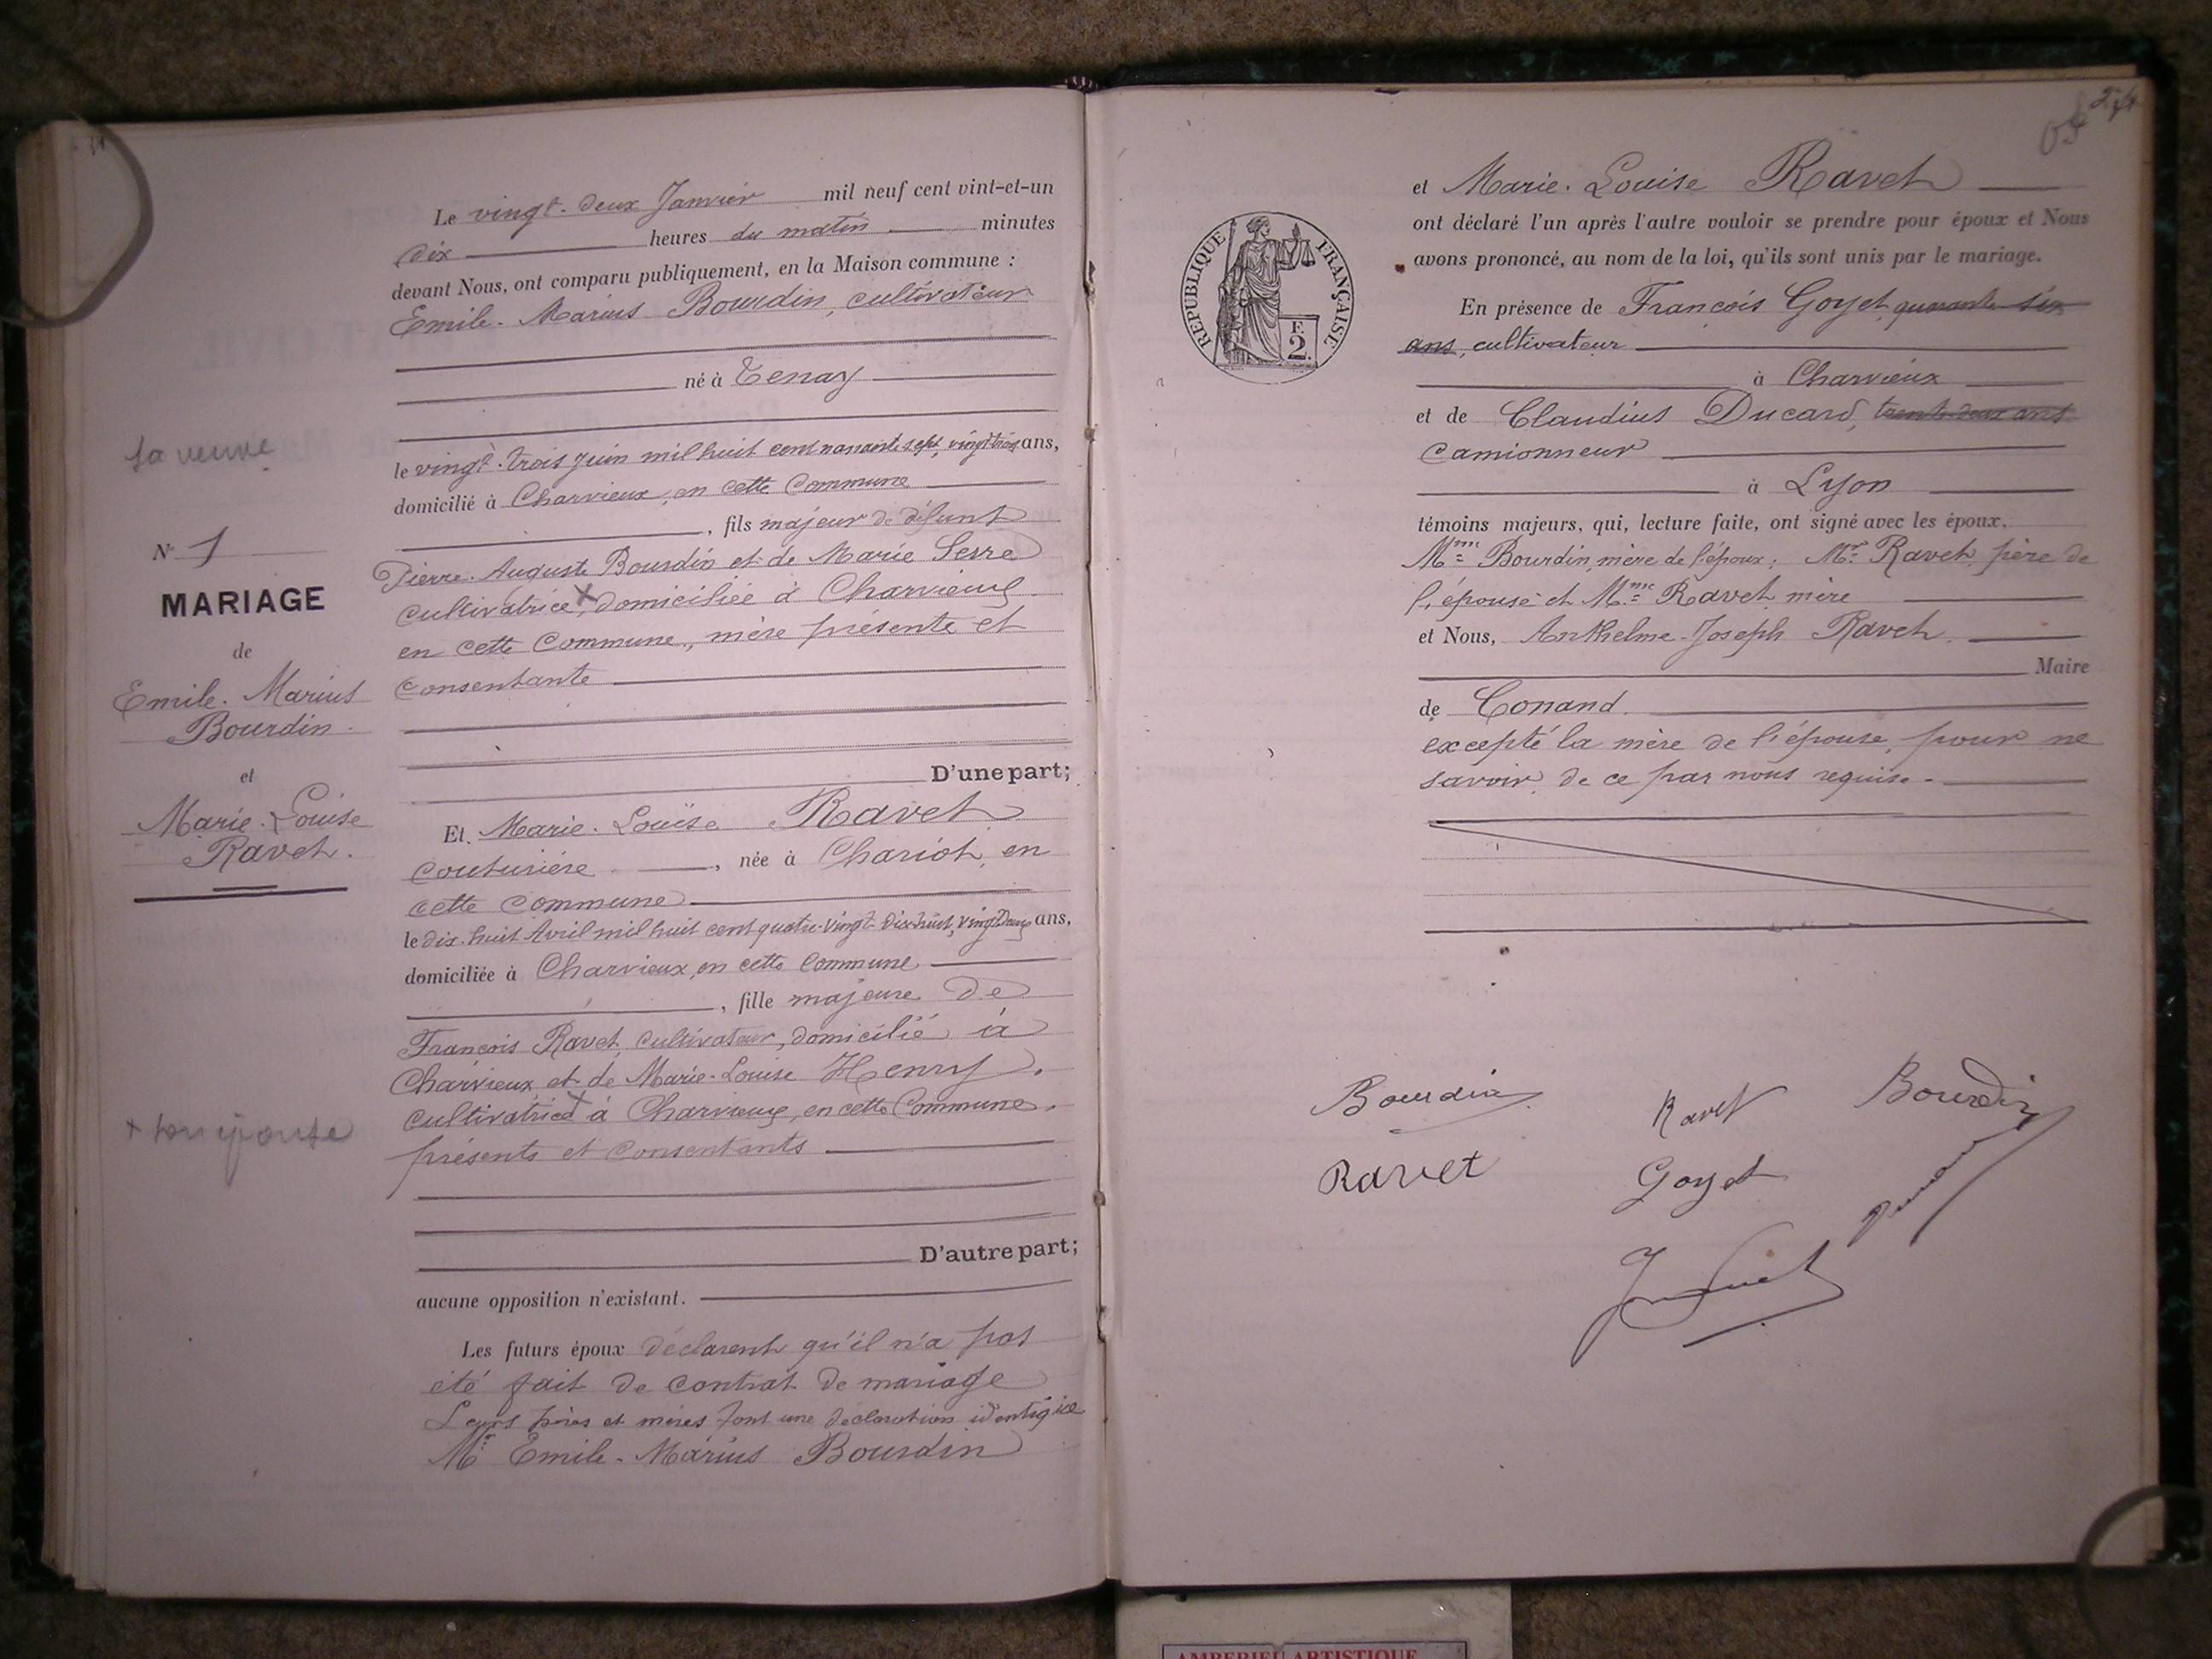 sa veuve
N° 1
MARIAGE
de
Emile. Marius
Bourdin.
et
Marie. Louise
Ravet.
+ son épouse
Le vingt-deux Janvier mil neuf cent vint-et-un
dix heures du matin minutes
devant Nous, ont comparu publiquement, en la Maison commune :
Emile. Marius Bourdin, cultivateur
né à Tenay
le vingt-trois juin mil huit cent nonante sept, vingt trois ans,
domicilié à Charvieux, en cette Commune
, fils majeur de défunt
Pierre. Auguste Bourdin et de Marie Serre
cultivatrice, domiciliée à Charvieux
en cette Commune, mère présente et
consentante
D'une part;
Et Marie. Louise Ravet
couturière, née à Chariot, en
cette commune
le dix-huit Avril mil huit cent quatre-vingt-dix-huit, vingt deux ans,
domiciliée à Charvieux, en cette Commune
, fille majeure de
François Ravet, cultivateur, domicilié à
Charvieux et de Marie-Louise Henry,
cultivatrice à Charvieux, en cette Commune,
présents et consentants
D'autre part;
aucune opposition n'existant.
Les futurs époux déclarent qu'il n'a pas
été fait de contrat de mariage
Leurs pères et mères font une déclaration identique
Mr Emile-Marius Bourdin
274
et Marie. Louise Ravet
ont déclaré l'un après l'autre vouloir se prendre pour époux et Nous
avons prononcé, au nom de la loi, qu'ils sont unis par le mariage.
REPUBLIQUE FRANÇAISE
F.
2.
En présence de François Goyet, quarante six
ans, cultivateur
à Charvieux
et de Claudius Ducard, trente-deux ans
camionneur
à Lyon
témoins majeurs, qui, lecture faite, ont signé avec les époux,
Mme Bourdin, mère de l'époux; Mr Ravet, père de
l'épouse et Mme Ravet mère
et Nous, Anthelme-Joseph Ravet,
Maire
de Conand.
excepté la mère de l'épouse, pour ne
savoir, de ce par nous requise.
Bourdin Ravet Bourdin
Ravet Goyet
AMBERIEU ARTISTIQUE